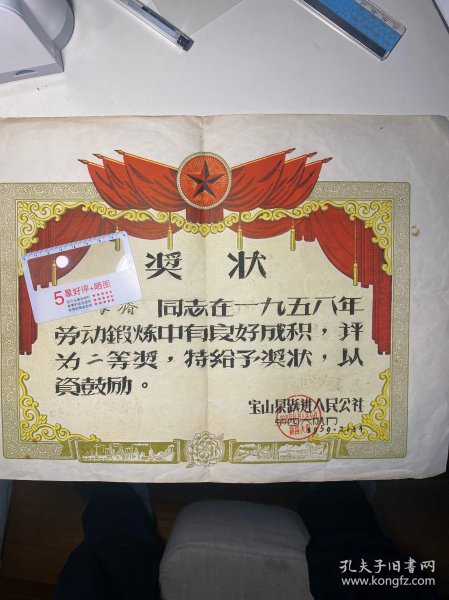 奖状
5星好评+晒图
同志在一九五八年
劳动鍛炼中有良好成积，评
为二等奖，特给予奖状，以
資鼓励。
宝山泉跃进人民公社
孔夫子旧书网
www.kongfz.com